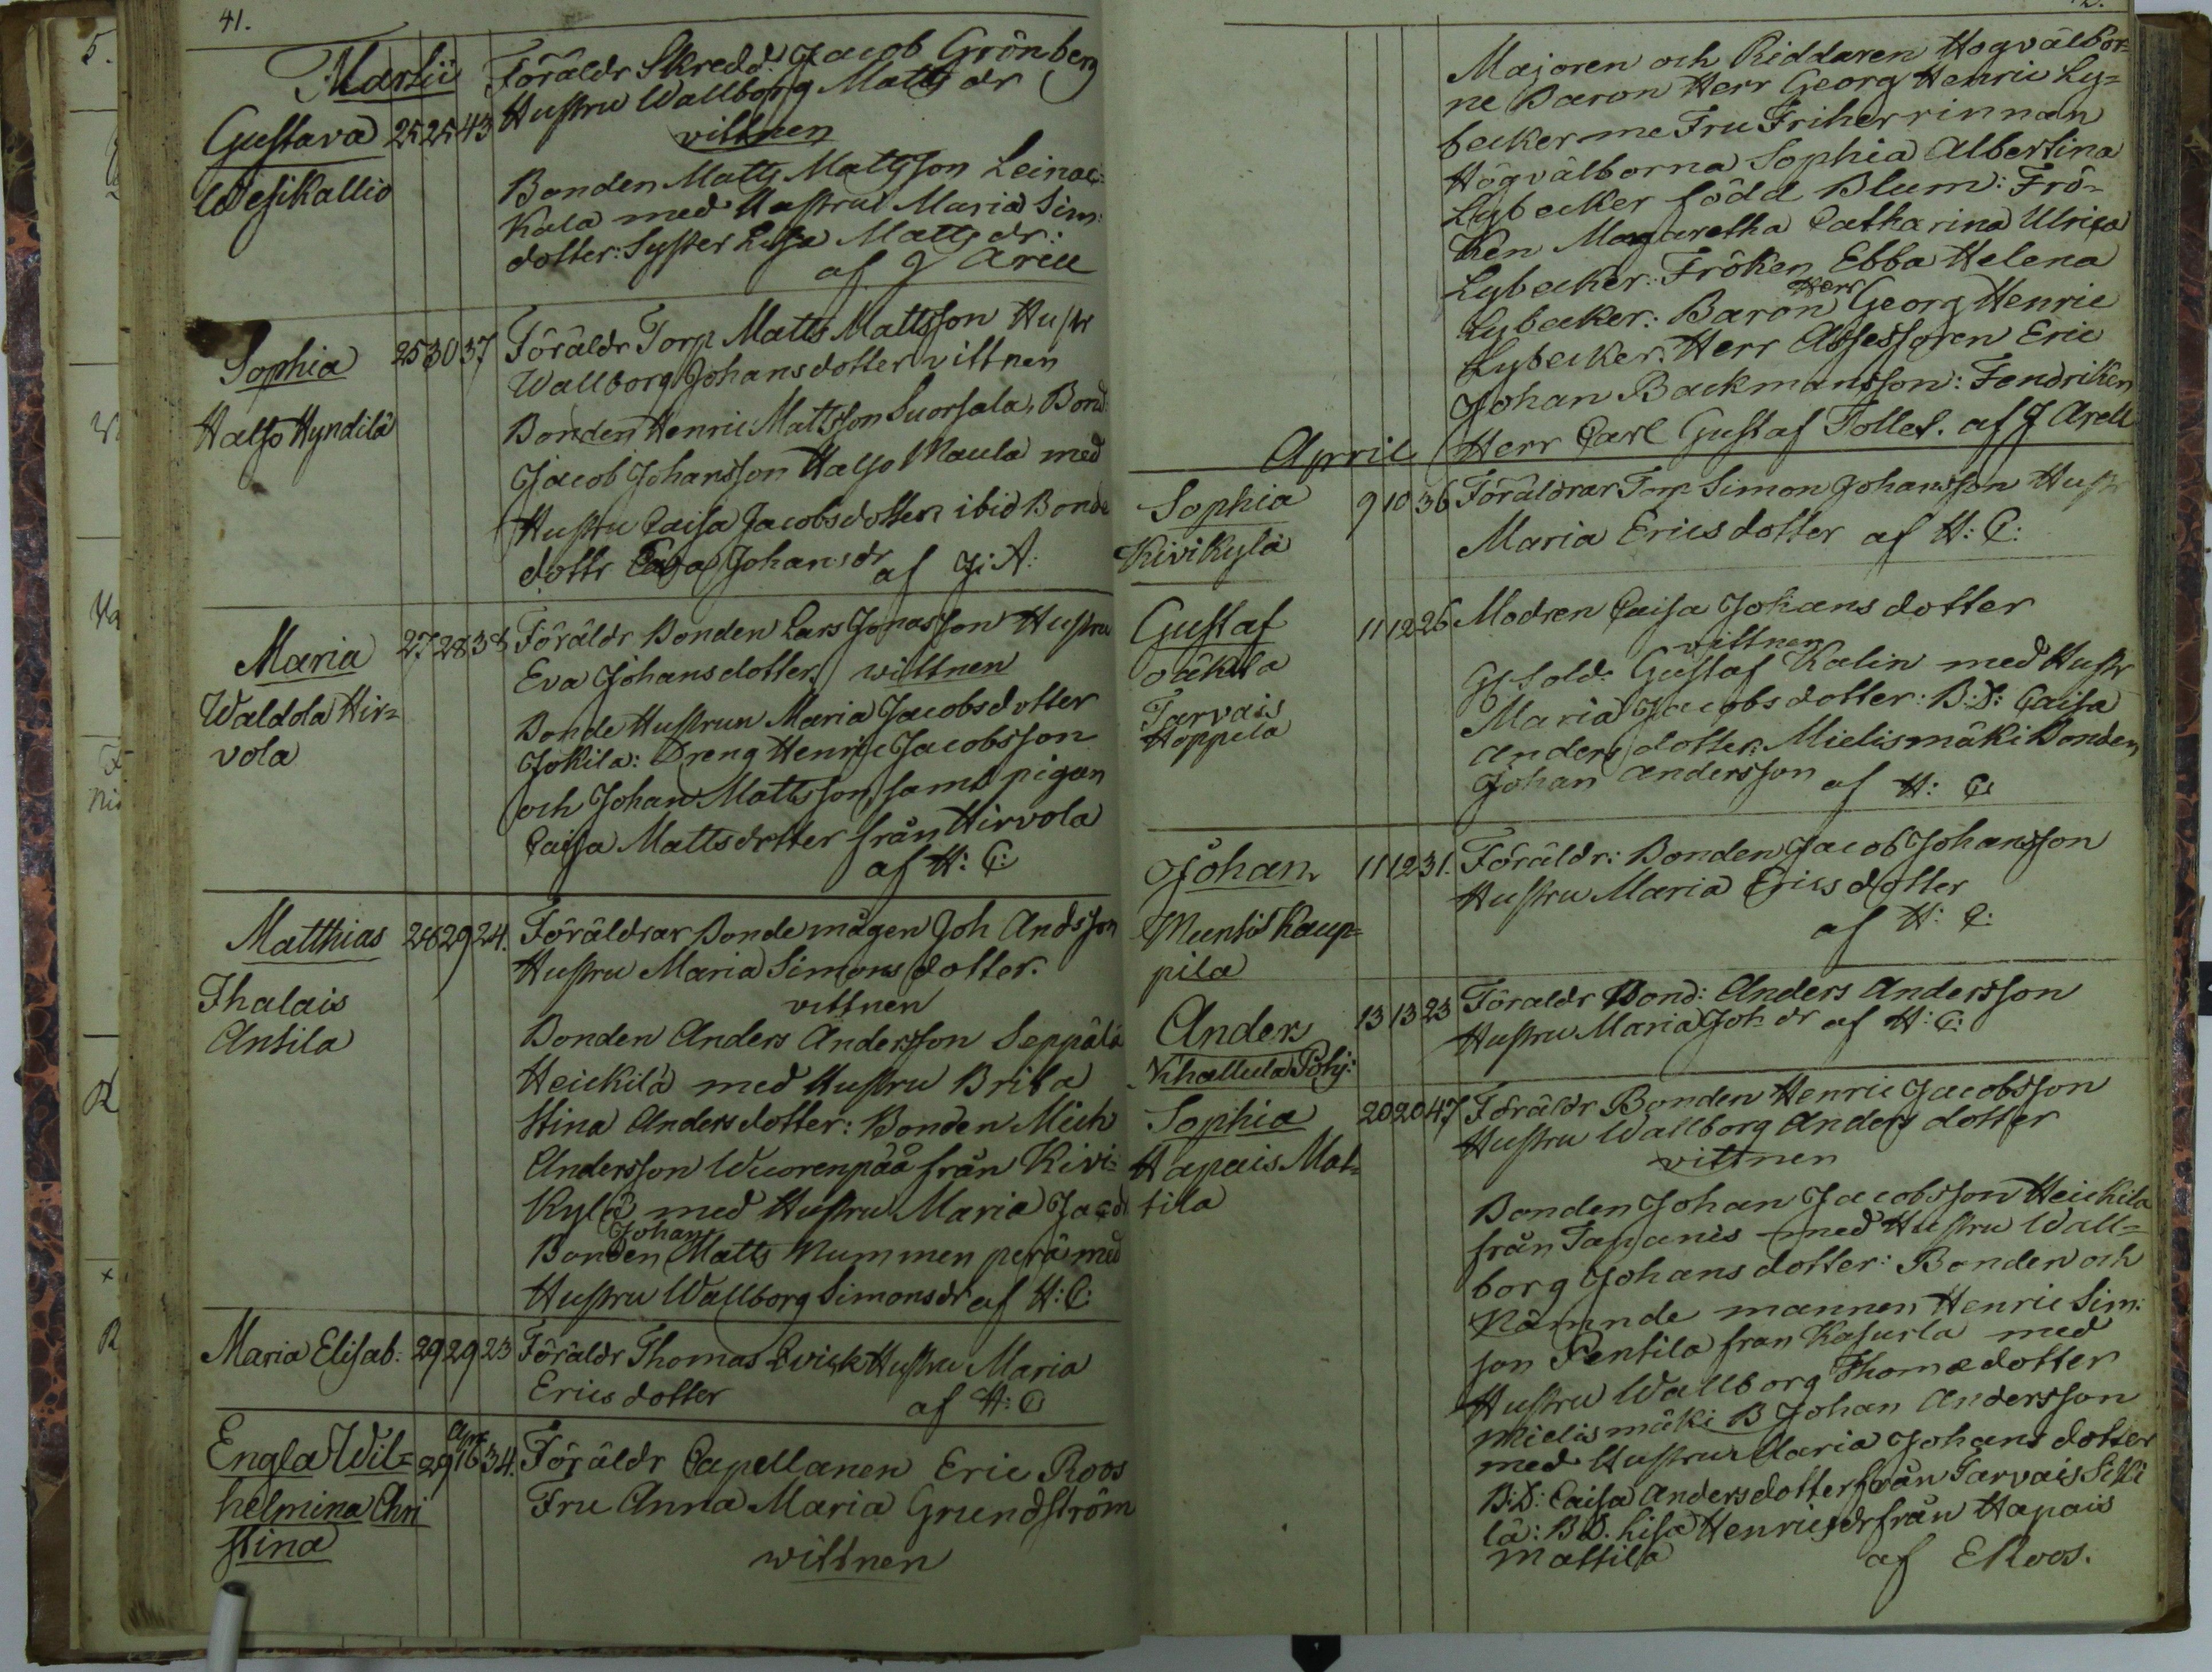 41.
Martii
Gustava 25 25 43
Wesikallio
Föräldr Skredd: Jacob Grönberg
Hustru Wallborg Matts dr
vittnen
Bonden Matts Mattsson Leinae=
Kala med Hustru Maria Sim:
dotter: Syster Lisa Matts dr:
af J Arell
Sophia 25 30 37
Halso Hyndilä
Föräldr Torp Matts Mattsson Hustr
Wallborg Johansdotter vittnen
Bonden Henric Mattsson Suorsala, Bond:
Jacob Johansson Halso Maula med
Hustru Caisa Jacobsdotter ibid Bonde
dottr Johansdr af J: A:
Maria 27 28 38
Waldola Hir=
vola
Föräldr Bonden Lars Jonasson Hustru
Eva Johansdotter wittnen
Bonde Hustrun Maria Jacobsdotter
Jokila: Dreng Henric Jacobsson
och Johan Mattsson, samt pigan
Caisa Mattsdotter från Hirvola
af H: C:
Matthias 28 29 24.
Thalais
Antila
Föräldrar Bonde mågen Joh Andsson
Hustru Maria Simons dotter.
vittnen
Bonden Anders Andersson Seppälä
Heickilä med Hustru Brita
Stina Andersdotter: Bonden Mich
Andersson Wuorenpää från Kivi=
Kylä med Hustru Maria Jacdr
Johan
Bonden Matts Nummenperä med
Hustru Wallborg Simonsdr af H: C:
Maria Elisab: 29 29 23
Föräldr Thomas Qvick Hustru Maria
Ericsdotter af H: C
Engla Wil= 29 Apr 16 34.
helmina Chri
stina
Föräldr Capellanen Eric Roos
Fru Anna Maria Grundström
wittnen
Majoren och Riddaren Hogvälbor=
ne Baron Herr Georg Henric Ly=
becker me Fru Friherrinnan
Högvälborna Sophia Albertina
Lybecker född Blum: Frö=
ken Margaretha Catharina Ulrica
Lybecker: Fröken Ebba Helena
Lybecker: Baron Herr Georg Henric
Lybecker: Herr Assessoren Eric
Johan Backmansson: Fendriken
Herr Carl Gustaf Tollet. af J Arell
April
Sophia 9 10 36
Kivikylä
Föräldrar Torp Simon Johansson Hustr
Maria Ericsdotter af H: C:
Gustaf 11 12 26
oäkta
Tarvais
Hoppela
Modren Caisa Johans dotter
wittnen
Gf Sold: Gustaf Kalin med Hustr
Maria Jacobsdotter: B: D: Caisa
Anders dotter: Mielismäki Bonden
Johan Andersson af H: C
Johan 11 12 31.
Muntis Kaup=
pila
Föräldr: Bonden Jacob Johansson
Hustru Maria Ericsdotter
af H: C:
Anders 13 13 23
Nihattula Pohj:
Föraldr Bond: Anders Andersson
Hustru Maria Joh dr af H: C:
Sophia 20 20 47
Hapais Mat=
tila
Föräldr Bonden Henric Jacobsson
Hustru Wallborg Anders dotter
vittnen
Bonden Johan Jacobsson Heickila
från Tapanis med Hustru Wall=
borg Johans dotter: Bonden och
Nämnde mannen Henric Sim:
son Pentila fran Kasurla med
Hustru Wallborg Thomædotter
Mielismäki B Johan Andersson
med Hustru Maria Johans dotter
B: D: Caisa Andersdotter från Tarvais
lä: B D. Lisa Henricsdr från Hapais
Mattila af E Roos.